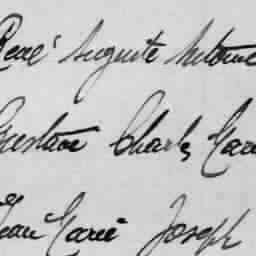 René Auguste Antoine
Gustave Charles Marie
Jean Marie Joseph